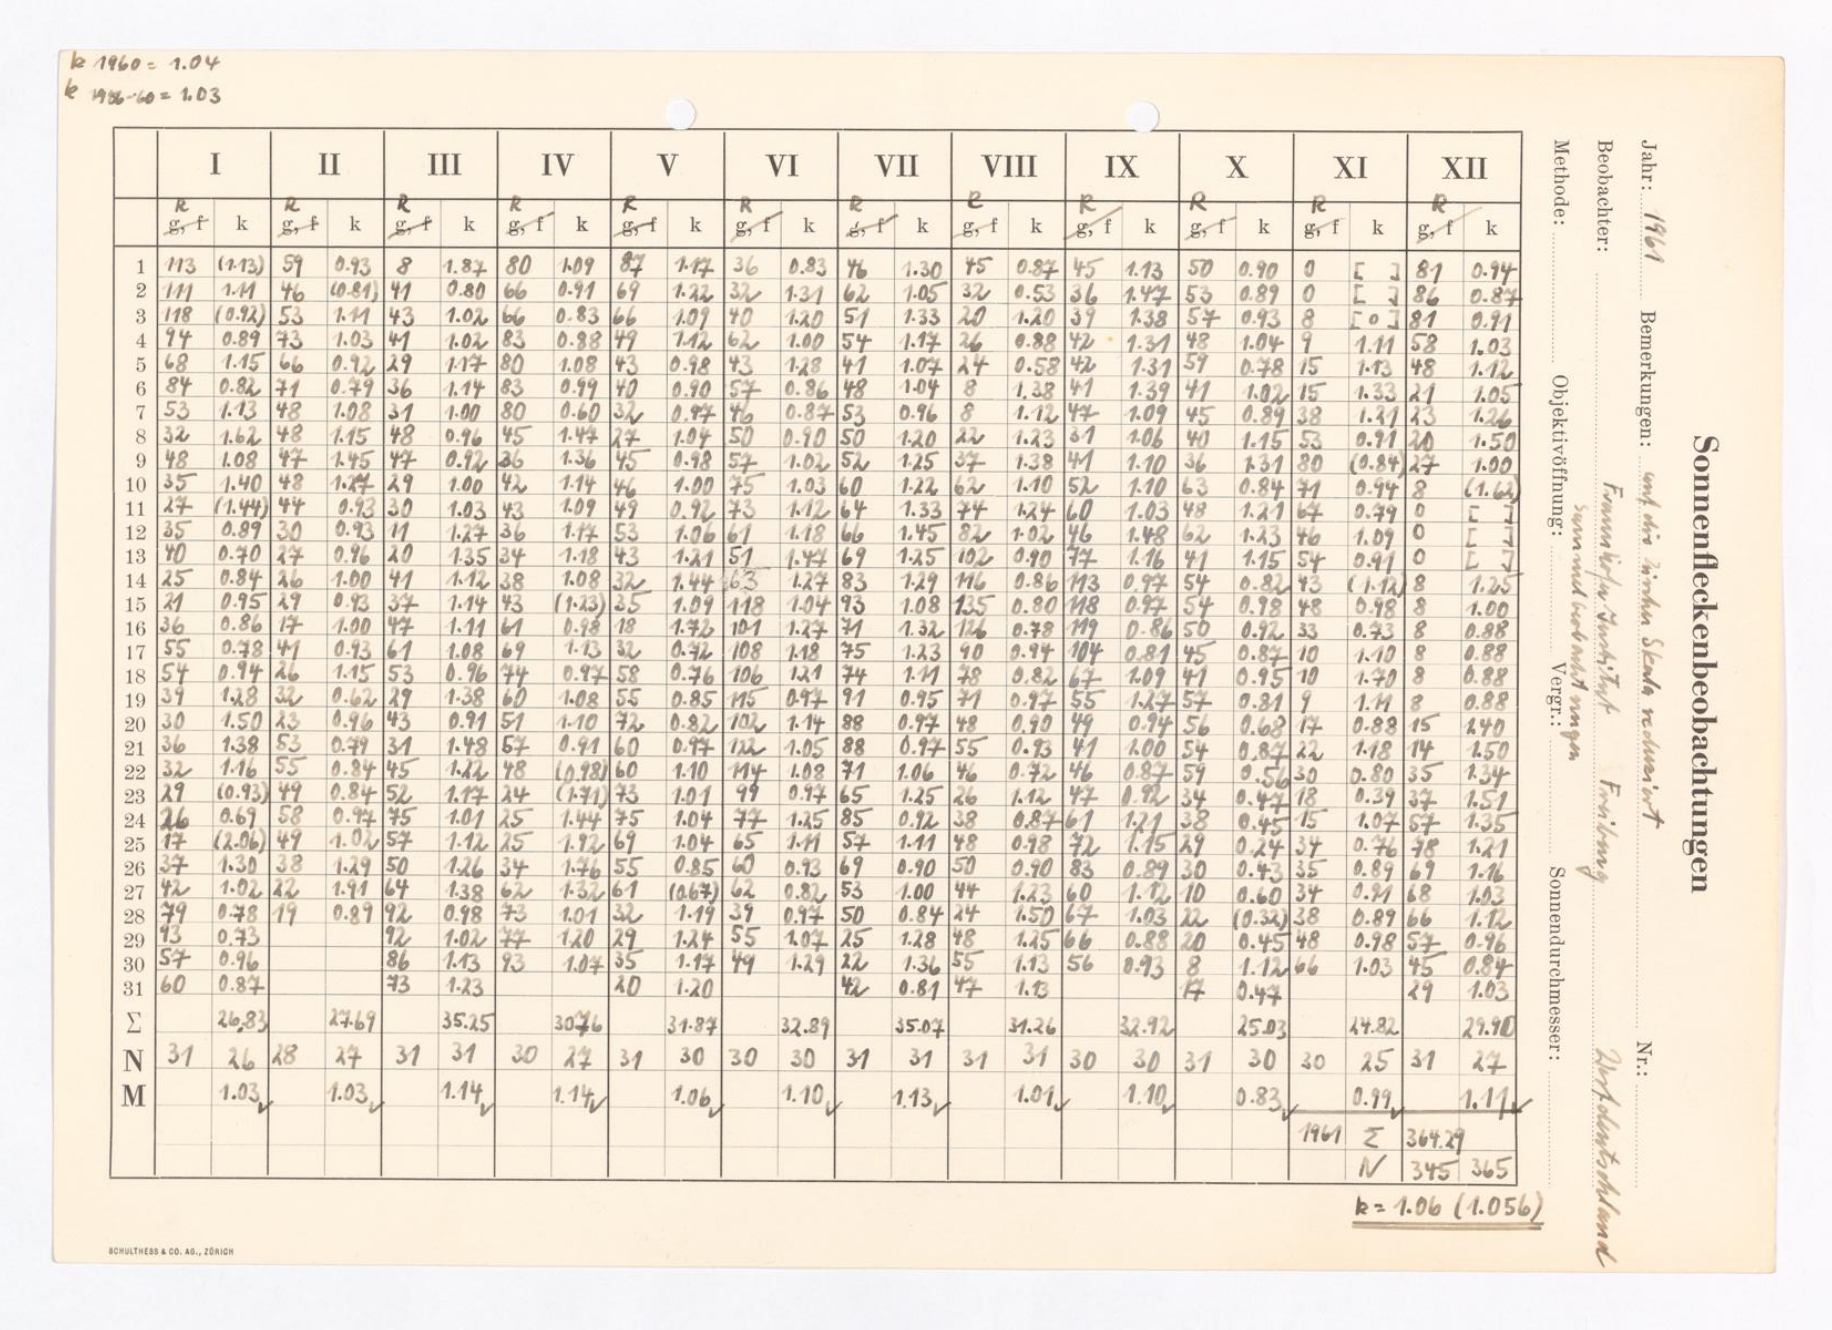 k 1960 = 1.04
k 1956-60 = 1.03
I II III IV V VI VII VIII IX X XI XII
R R R R R R R R R R R R
g, f k g, f k g, f k g, f k g, f k g, f k g, f k g, f k g, f k g, f k g, f k g, f k
1 113 (1.13) 59 0.93 8 1.87 80 1.09 87 1.17 36 0.83 46 1.30 45 0.87 45 1.13 50 0.90 0 [ ] 81 0.94
2 111 1.11 46 (0.81) 41 0.80 66 0.91 69 1.22 32 1.31 62 1.05 32 0.53 36 1.47 53 0.89 0 [ ] 86 0.87
3 118 (0.92) 53 1.11 43 1.02 66 0.83 66 1.09 40 1.20 51 1.33 20 1.20 39 1.38 57 0.93 8 [0] 81 0.91
4 94 0.89 73 1.03 41 1.02 83 0.88 49 1.12 62 1.00 54 1.17 26 0.88 42 1.31 48 1.04 9 1.11 58 1.03
5 68 1.15 66 0.92 29 1.17 80 1.08 43 0.98 43 1.28 41 1.07 24 0.58 42 1.31 59 0.78 15 1.13 48 1.12
6 84 0.82 71 0.79 36 1.14 83 0.99 40 0.90 57 0.86 48 1.04 8 1.38 41 1.39 41 1.02 15 1.33 21 1.05
7 53 1.13 48 1.08 31 1.00 80 0.60 32 0.97 46 0.87 53 0.96 8 1.12 47 1.09 45 0.89 38 1.21 23 1.26
8 32 1.62 48 1.15 48 0.96 45 1.47 27 1.04 50 0.90 50 1.20 22 1.23 31 1.06 40 1.15 53 0.91 20 1.50
9 48 1.08 47 1.45 47 0.92 36 1.36 45 0.98 57 1.02 52 1.25 37 1.38 41 1.10 36 1.31 80 (0.84) 27 1.00
10 35 1.40 48 1.27 29 1.00 42 1.14 46 1.00 75 1.03 60 1.22 62 1.10 52 1.10 63 0.84 71 0.94 8 (1.62)
11 27 (1.44) 44 0.93 30 1.03 43 1.09 49 0.92 73 1.12 64 1.33 74 1.24 60 1.03 48 1.21 67 0.79 0 [ ]
12 35 0.89 30 0.93 11 1.27 36 1.17 53 1.06 61 1.18 66 1.45 82 1.02 46 1.48 62 1.23 46 1.09 0 [ ]
13 40 0.70 27 0.96 20 1.35 34 1.18 43 1.21 51 1.47 69 1.25 102 0.90 77 1.16 41 1.15 54 0.91 0 [ ]
14 25 0.84 26 1.00 41 1.12 38 1.08 32 1.44 63 1.27 83 1.29 116 0.86 113 0.97 54 0.82 43 (1.12) 8 1.25
15 21 0.95 29 0.93 37 1.14 43 (1.23) 35 1.09 118 1.04 93 1.08 135 0.80 118 0.97 54 0.98 48 0.98 8 1.00
16 36 0.86 17 1.00 47 1.11 61 0.98 18 1.72 101 1.27 71 1.32 126 0.78 119 0.86 50 0.92 33 0.73 8 0.88
17 55 0.78 41 0.93 61 1.08 69 1.13 32 0.72 108 1.18 75 1.23 90 0.94 104 0.81 45 0.87 10 1.10 8 0.88
18 54 0.94 26 1.15 53 0.96 74 0.97 58 0.76 106 1.21 74 1.11 78 0.82 67 1.09 41 0.95 10 1.70 8 0.88
19 39 1.28 32 0.62 29 1.38 60 1.08 55 0.85 115 0.97 91 0.95 71 0.97 55 1.27 57 0.81 9 1.11 8 0.88
20 30 1.50 23 0.96 43 0.91 51 1.10 72 0.82 102 1.14 88 0.97 48 0.90 49 0.94 56 0.68 17 0.88 15 1.40
21 36 1.38 53 0.79 31 1.48 57 0.91 60 0.97 122 1.05 88 0.97 55 0.93 41 1.00 54 0.87 22 1.18 14 1.50
22 32 1.16 55 0.84 45 1.22 48 (0.98) 60 1.10 114 1.08 71 1.06 46 0.72 46 0.87 59 0.56 30 0.80 35 1.34
23 29 (0.93) 49 0.84 52 1.17 24 (1.71) 73 1.01 99 0.97 65 1.25 26 1.12 47 0.92 34 0.47 18 0.39 37 1.51
24 26 0.69 58 0.97 75 1.01 25 1.44 75 1.04 77 1.25 85 0.92 38 0.87 61 1.21 38 0.45 15 1.07 57 1.35
25 17 (2.06) 49 1.02 57 1.12 25 1.92 69 1.04 65 1.11 57 1.11 48 0.98 72 1.15 29 0.24 34 0.76 78 1.21
26 37 1.30 38 1.29 50 1.26 34 1.76 55 0.85 60 0.93 69 0.90 50 0.90 83 0.89 30 0.43 35 0.89 69 1.16
27 42 1.02 22 1.91 64 1.38 62 1.32 61 (0.67) 62 0.82 53 1.00 44 1.23 60 1.12 10 0.60 34 0.91 68 1.03
28 79 0.78 19 0.89 92 0.98 73 1.01 32 1.19 39 0.97 50 0.84 24 1.50 67 1.03 22 (0.32) 38 0.89 66 1.12
29 93 0.73 92 1.02 77 1.20 29 1.24 55 1.07 25 1.28 48 1.25 66 0.88 20 0.45 48 0.98 57 0.96
30 57 0.96 86 1.13 93 1.07 35 1.17 49 1.29 22 1.36 55 1.13 56 0.93 8 1.12 66 1.03 45 0.84
31 60 0.87 73 1.23 20 1.20 42 0.81 47 1.13 17 0.47 29 1.03
Σ 26.83 27.69 35.25 30.76 31.87 32.89 35.07 31.26 32.92 25.03 24.82 29.90
N 31 26 28 27 31 31 30 27 31 30 30 30 31 31 31 31 30 30 31 30 30 25 31 27
M 1.03 1.03 1.14 1.14 1.06 1.10 1.13 1.01 1.10 0.83 0.99 1.11
1961 Σ 364.29
N 345 365
k = 1.06 (1.056)
SCHULTHESS & CO. AG., ZÜRICH
Sonnenfleckenbeobachtungen
Jahr: 1961 Bemerkungen: auf die Zürcher Skala reduziert Nr.:
Beobachter: Fraunhofer Institut Freiburg Westdeutschland
Sonnenbeobachtungen
Methode: Objektivöffnung: Vergr.: Sonnendurchmesser: